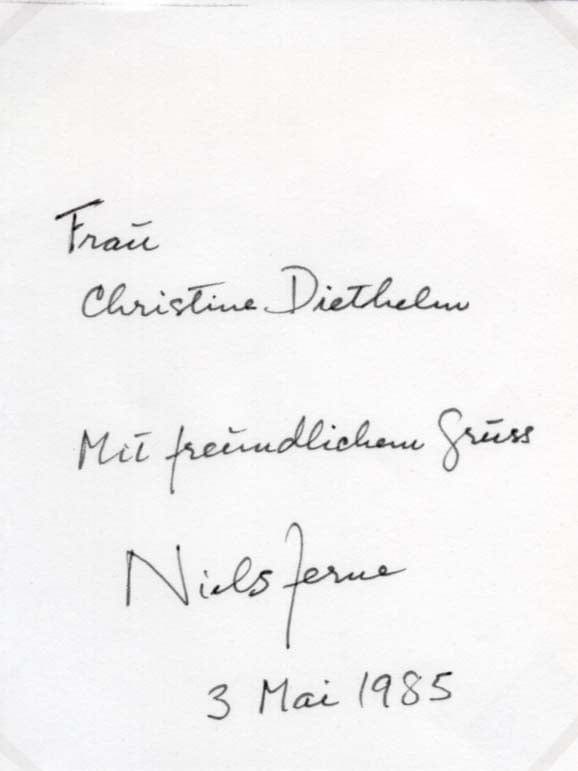 Frau
Christine Diethelm
Mit freundlichem Gruss
Niels Jerne
3 Mai 1985